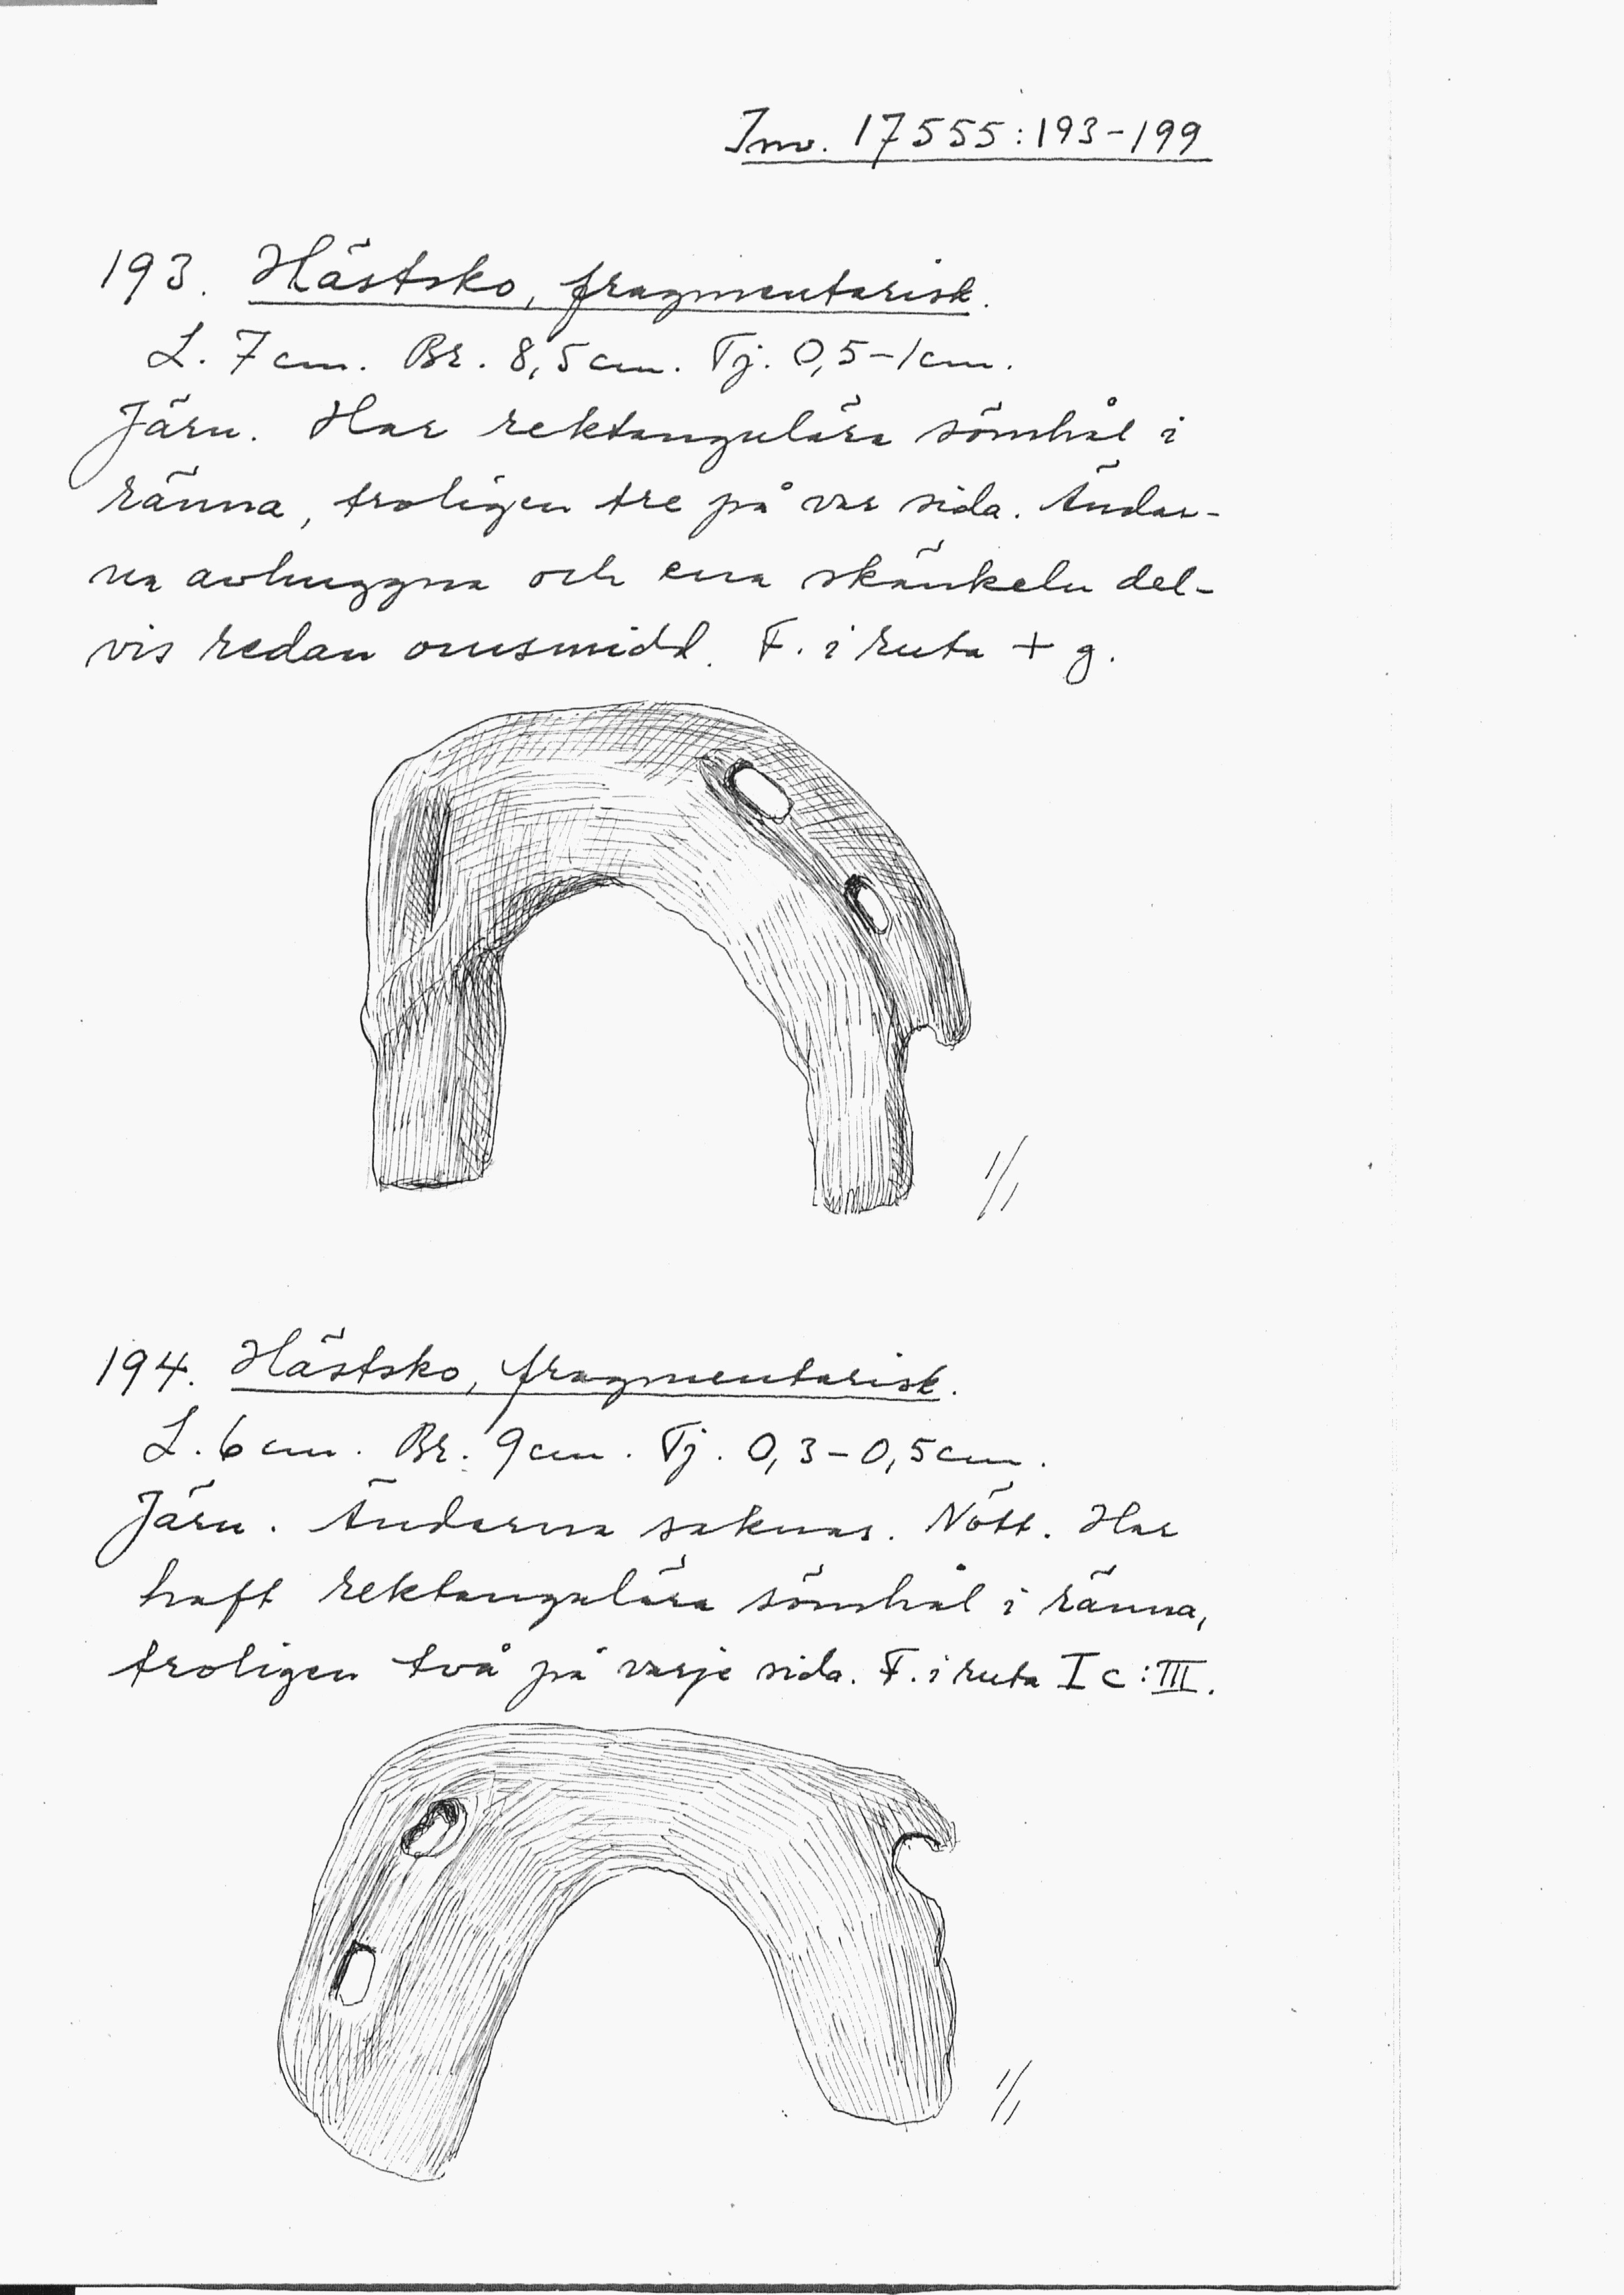 Inv. 17555:193-199
193. Hästsko, fragmentarisk.
L. 7 cm. Br. 8,5 cm. Tj. 0,5-1 cm.
Järn. Har rektangulära sömhål i
ränna, troligen tre på var sida. Ändar-
na avhuggna och ena skänkeln del-
vis redan omsmidd. F. i ruta + g.
1/1
194. Hästsko, fragmentarisk.
L. 6 cm. Br. 9 cm. Tj. 0,3-0,5 cm.
Järn. Ändarna saknas. Nött. Har
haft rektangulära sömhål i ränna,
troligen två på varje sida. F. i ruta I c:III.
1/1